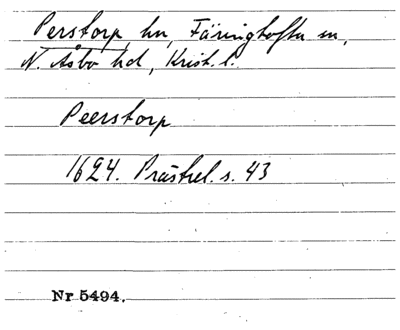 Perstorp, hn, Färinghofta sn,
N. Åsbo hd, Krist. l.
Peerstorp
1624. Prästrel. s. 43
Nr 5494.